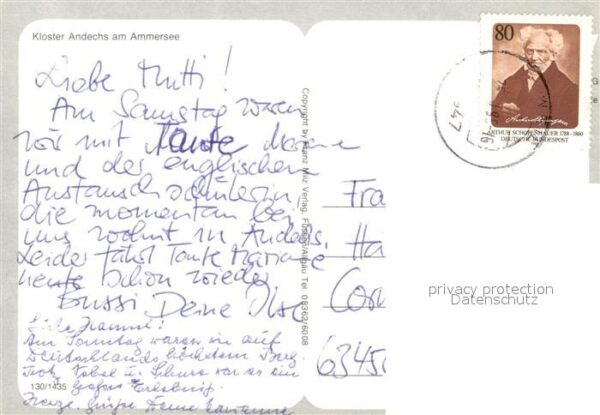 Kloster Andechs am Ammersee
Liebe Mutti!
Am Samstag waren
wir mit Tante Marianne
und der englischen
Austauschschülerin,
die momentan bei
uns wohnt in Andechs.
Leider fährt Tante Marianne
heute schon wieder.
Bussi Deine
Am Sonntag waren wir auf
Deutschlands höchstem Berg.
Trotz Nebel u. Schnee war es ein
großes Erlebnis.
Herzl. Grüße Deine Marianne
130/1435
Copyright by Franz Milz Verlag,
Tel. 08362/6008
80
ARTHUR SCHOPENHAUER 1788-1860
DEUTSCHE BUNDESPOST
Fra
Ha
Cor
6345
privacy protection
Datenschutz